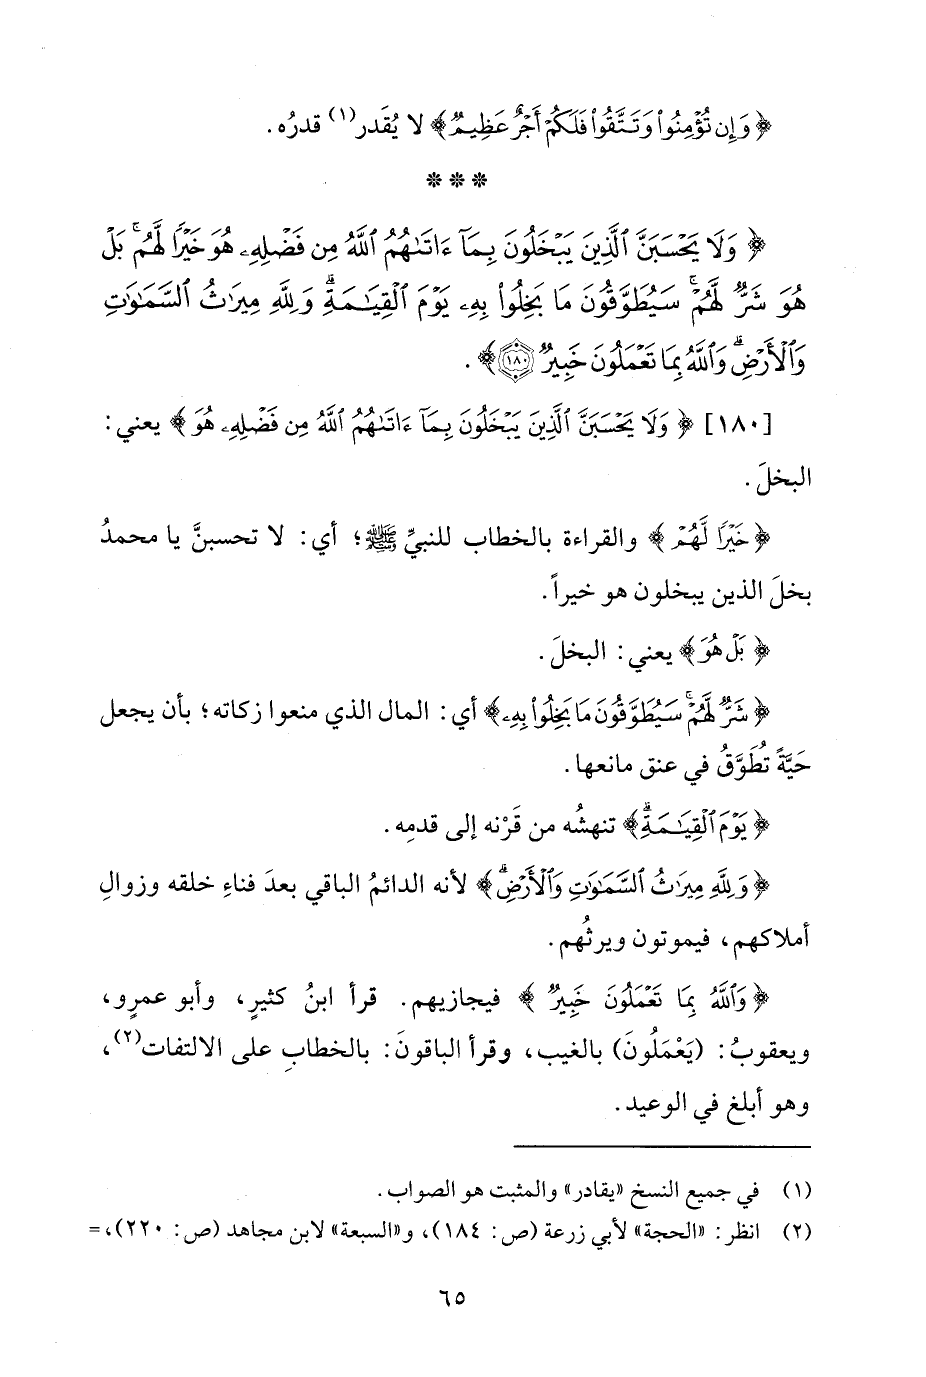 ﴿ وَإِن تُؤْمِنُوا۟ وَتَتَّقُوا۟ فَلَكُمْ أَجْرٌ عَظِيمٌ ﴾ لا يُقَدر(١) قدرُه.
* * *
﴿ وَلَا يَحْسَبَنَّ ٱلَّذِينَ يَبْخَلُونَ بِمَآ ءَاتَىٰهُمُ ٱللَّهُ مِن فَضْلِهِۦ هُوَ خَيْرًا لَّهُم ۖ بَلْ
هُوَ شَرٌّ لَّهُمْ ۖ سَيُطَوَّقُونَ مَا بَخِلُوا۟ بِهِۦ يَوْمَ ٱلْقِيَـٰمَةِ ۗ وَلِلَّهِ مِيرَٰثُ ٱلسَّمَـٰوَٰتِ
وَٱلْأَرْضِ ۗ وَٱللَّهُ بِمَا تَعْمَلُونَ خَبِيرٌ ١٨٠ ﴾.
[١٨٠] ﴿ وَلَا يَحْسَبَنَّ ٱلَّذِينَ يَبْخَلُونَ بِمَآ ءَاتَىٰهُمُ ٱللَّهُ مِن فَضْلِهِۦ هُوَ ﴾ يعني:
البخلَ.
﴿ خَيْرًا لَّهُمْ ﴾ والقراءة بالخطاب للنبيِّ ﷺ؛ أي: لا تحسبنَّ يا محمدُ
بخلَ الذين يبخلون هو خيراً.
﴿ بَلْ هُوَ ﴾ يعني: البخلَ.
﴿ شَرٌّ لَّهُمْ ۖ سَيُطَوَّقُونَ مَا بَخِلُوا۟ بِهِۦ ﴾ أي: المال الذي منعوا زكاته؛ بأن يجعل
حَيَّةً تُطَوَّقُ في عنق مانعها.
﴿ يَوْمَ ٱلْقِيَـٰمَةِ ۗ ﴾ تنهشُه من قَرْنه إلى قدمِه.
﴿ وَلِلَّهِ مِيرَٰثُ ٱلسَّمَـٰوَٰتِ وَٱلْأَرْضِ ۗ ﴾ لأنه الدائمُ الباقي بعدَ فناءِ خلقه وزوالِ
أملاكهم، فيموتون ويرثُهم.
﴿ وَٱللَّهُ بِمَا تَعْمَلُونَ خَبِيرٌ ﴾ فيجازيهم. قرأ ابنُ كثيرٍ، وأبو عمرٍو،
ويعقوبُ: (يَعْمَلُونَ) بالغيب، وقرأ الباقونَ: بالخطابِ على الالتفات(٢)،
وهو أبلغ في الوعيد.
(١) في جميع النسخ «يقادر» والمثبت هو الصواب.
(٢) انظر: «الحجة» لأبي زرعة (ص: ١٨٤)، و«السبعة» لابن مجاهد (ص: ٢٢٠)، =
٦٥